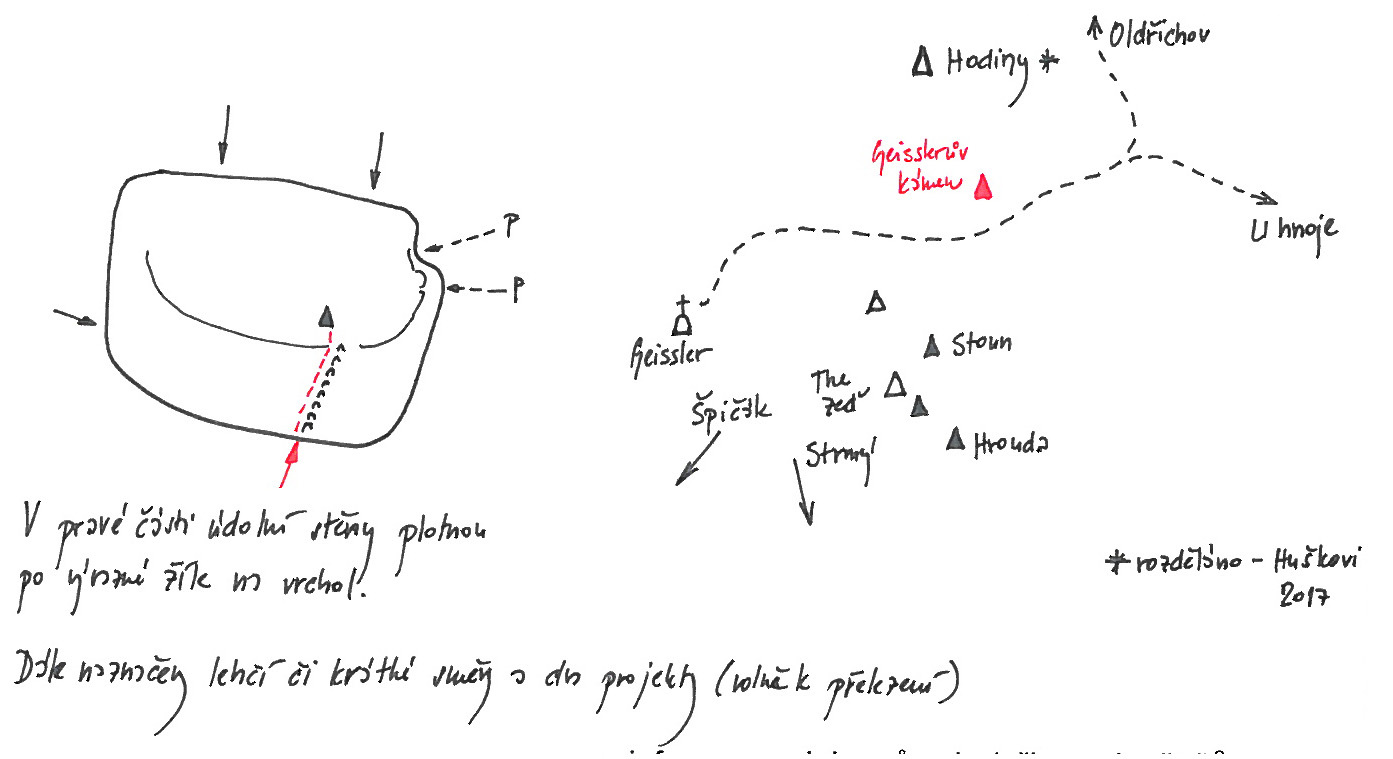 Oldřichov
Hodiny *
Geisslerův
kámen
P
P
U hnoje
Geissler
Stoun
The
zeď
Špičák
Hrouda
Strmý
V pravé části údolní stěny plotnou
po výrazné žíle na vrchol.
* rozděláno - Huškovi
2017
Dále naznačeny lehčí či krátké směry a dva projekty (volně k přelezení)